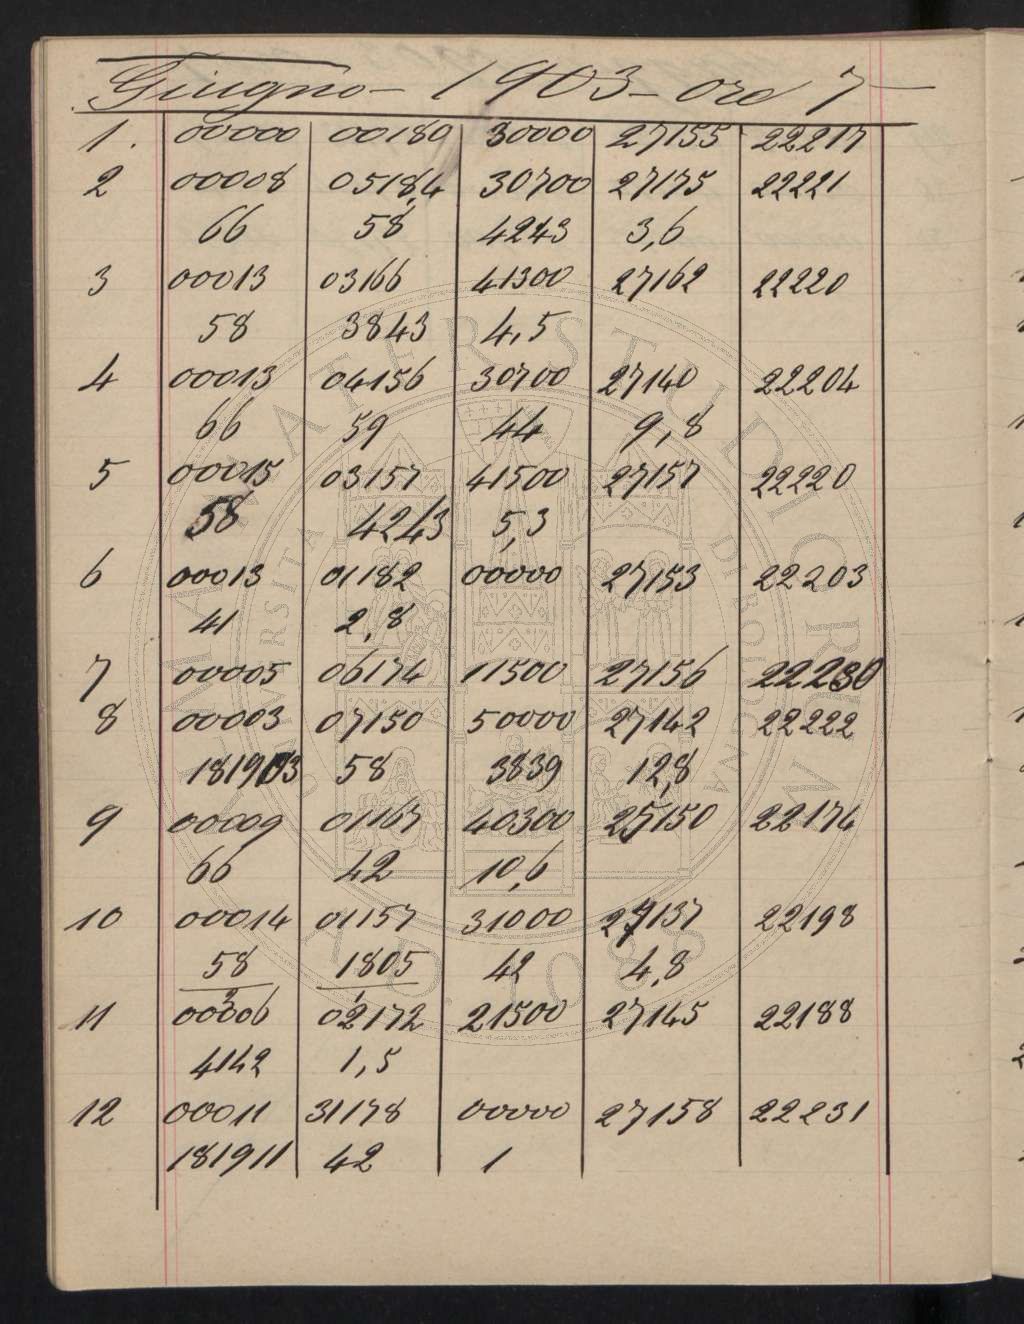 Giugno - 1903 - ore 7
1. 00000 00180 30000 27155 22217
2 00008 05184 30700 27175 22221
66 58 4243 3,6
3 00013 03166 41300 27162 22220
58 3843 4,5
4 00013 04156 30700 27140 22204
66 59 44 9,8
5 00015 03157 41500 27157 22220
58 4243 5,3
6 00013 01182 00000 27153 22203
41 2,8
7 00005 06174 11500 27156 22230
8 00003 07150 50000 27142 22222
181903 58 3839 12,8
9 00009 01167 40300 25150 22174
66 42 10,6
10 00014 01157 31000 27137 22198
58 1805 42 4,8
11 00006 02172 21500 27145 22188
4142 1,5
12 00011 31178 00000 27158 22231
181911 42 1
ALMA MATER STUDIORUM
A.D. 1088